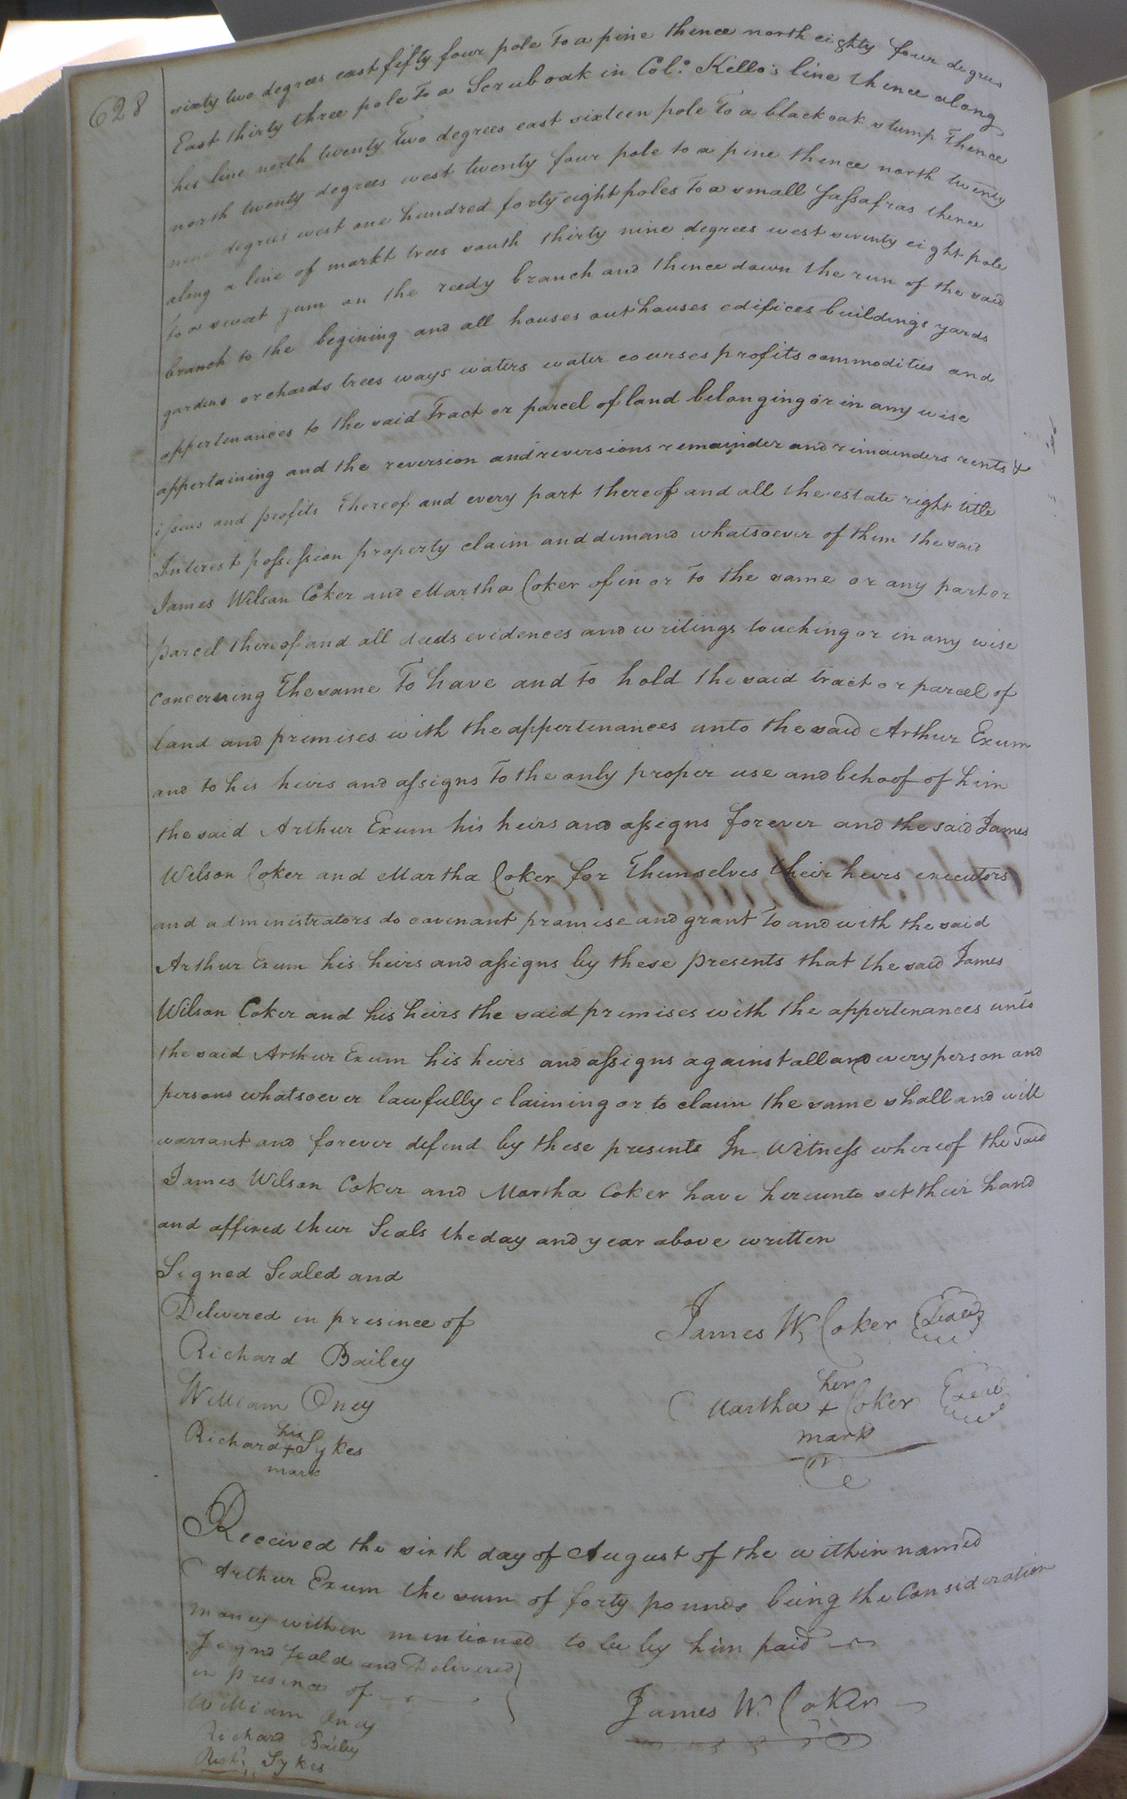 628
sixty two degrees east fifty four pole to a pine thence north eighty four degrees
East thirty three pole to a Scrub oak in Col.º Kello's line thence along
his line north twenty two degrees east sixteen pole to a black oak stump thence
north twenty degrees west twenty four pole to a pine thence north twenty
nine degrees west one hundred forty eight poles to a small Sassafras thence
along a line of markt trees south thirty nine degrees west seventy eight pole
to a sweat gum on the reedy branch and thence down the run of the said
branch to the begining and all houses outhouses edifices buildings yards
gardens orchards trees ways waters water courses profits commodities and
appertenances to the said Tract or parcel of land belonging or in any wise
appertaining and the reversion and reversions remainder and remainders rents &
issues and profits thereof and every part thereof and all the estate right title
Interest possession property claim and demand whatsoever of them the said
James Wilson Coker and Martha Coker of in or to the same or any part or
parcel thereof and all deeds evidences and writings touching or in any wise
concerning the same To have and to hold the said tract or parcel of
land and premises with the appertenances unto the said Arthur Exum
and to his heirs and assigns to the only proper use and behoof of him
the said Arthur Exum his heirs and assigns forever and the said James
Wilson Coker and Martha Coker for themselves their heirs executors
and administrators do covenant promise and grant to and with the said
Arthur Exum his heirs and assigns by these presents that the said James
Wilson Coker and his heirs the said premises with the appertenances unto
the said Arthur Exum his heirs and assigns against all and every person and
persons whatsoever lawfully claiming or to claim the same shall and will
warrant and forever defend by these presents In Witness whereof the said
James Wilson Coker and Martha Coker have hereunto set their hand
and affixed their Seals the day and year above written
Signed Sealed and
Delivered in presince of
James W. Coker (Seal)
Richard Bailey
William Oney
her
Martha + Coker (Seal)
mark
his
Richard + Sykes
mark
Received the sixth day of August of the within named
Arthur Exum the sum of forty pounds being the Consideration
money within mentioned to be by him paid
Signd Seald and Delivered
in presince of
James W. Coker
William Oney
Richard Bailey
Richd. Sykes